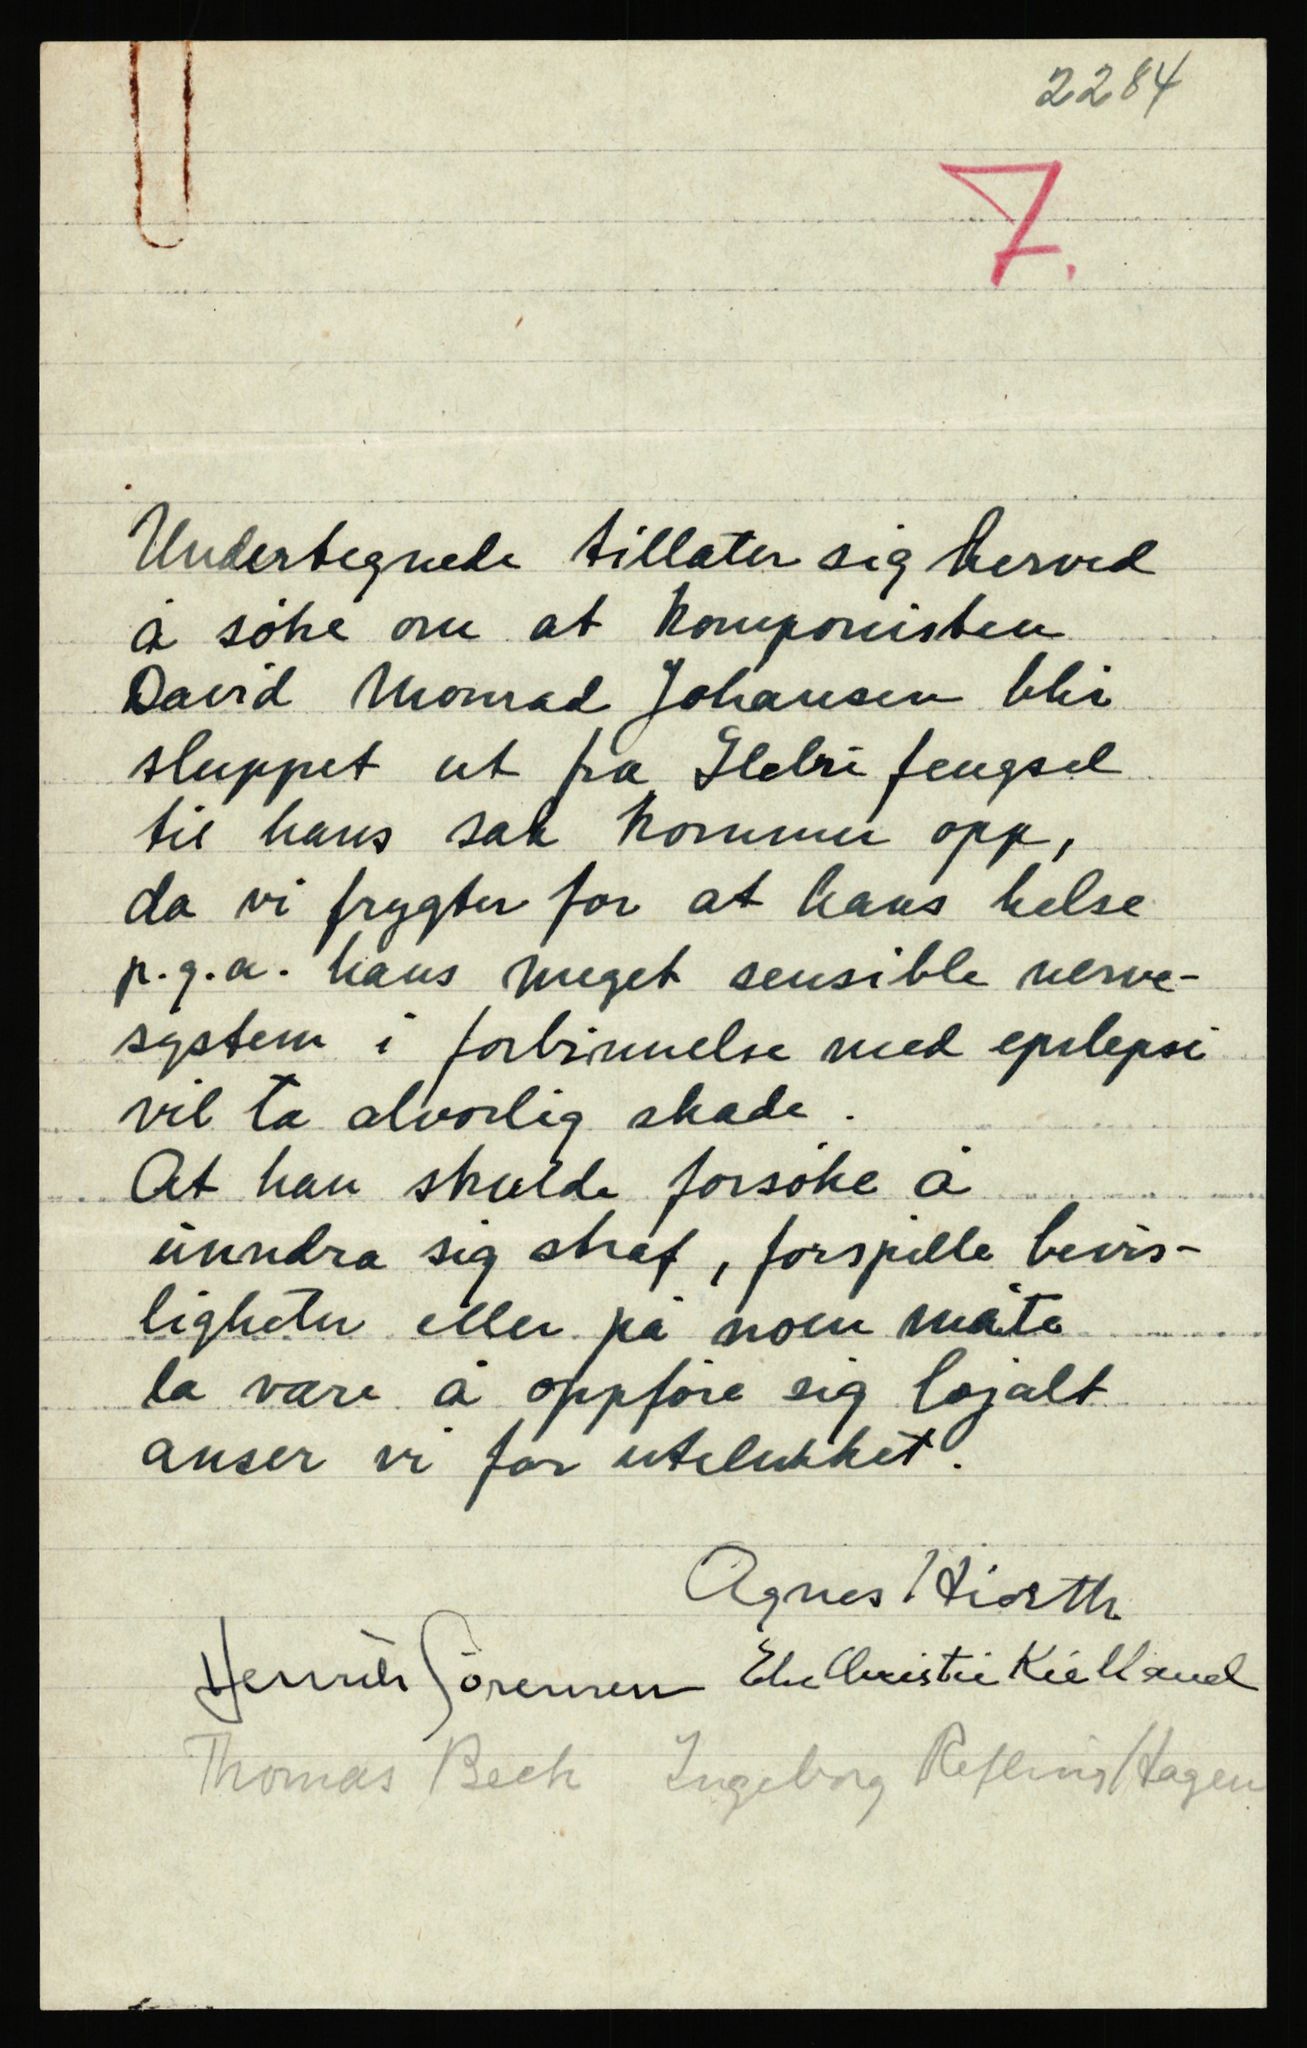 2284
7.
Undertegnede tillater sig herved
å söke om at komponisten
David Monrad Johansen bli
sluppet ut fra Ilebu fengsel
til hans sak kommer opp,
da vi frygter for at hans helse
p.g.a. hans meget sensible nerve-
system i forbinnelse med epilepsi
vil ta alvorlig skade.
At han skulde forsöke å
unndra sig straf, forspille bevis-
ligheter eller på noen måte
la være å oppföre sig lojalt
anser vi for utelukket.
Agnes Hiorth
Henrik Sörensen Else Christie Kielland
Thomas Beck Ingeborg Refling Hagen